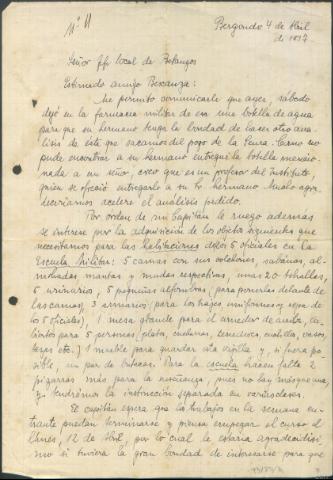 Nº 11
Bergondo 4 de Abril
de 1937
Señor jefe local de Betanzos
Estimado amigo Bescanza:
Me permito comunicarle que ayer, sábado
dejé en la farmacia militar de esa una botella de agua
para que su hermano tenga la bondad de hacer otro aná-
lisis de ésta que sacamos del pozo de la Feura. Como no
pude encontrar a su hermano entregué la botella mencio-
nada a un señor, creo que es un profesor del Instituto,
quien se ofreció entregarlo a su hermano. Mucho agra-
deceríamos acelere el análisis pedido.
Por orden de mi Capitán le ruego ademas
se interese por la adquisición de los objetos siguientes que
necesitamos para las habitaciones de los 5 oficiales en la
Escuela Militar: 5 camas con sus colchones, sábanas, al-
mohadas mantas y mudas respectivas, unas 20 tohallas,
5 urinarios, 5 pequeñas alfombras (para ponerlas delante de
las camas), 3 armarios (para los trajes uniformes y ropa de
los 5 oficiales), 1 mesa grande para el comedor de aquellos, cu-
biertos para 5 personas (platos, cucharas, tenedores, cuchillos, vasos,
tazas etc.) 1 mueble para guardar esta vajilla y, si fuera po-
sible, un par de butacas. Para la escuela hacen falta 2
pizarras más para la enseñanza, pues no hay más que una,
y tendrémos la instrucción separada en varias clases.
El capitán espera que los trabajos en la semana en-
trante puedan terminarse y piensa empezar el curso el
lunes, 12 de Abril, por lo cual le estaria agradecidísi-
mo si tuviera la gran bondad de interesarse para que